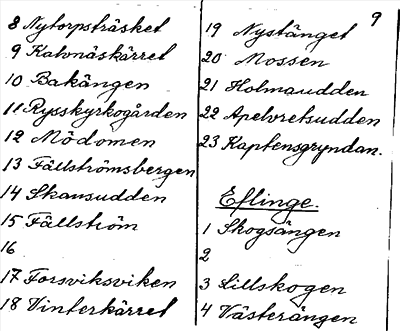 8 Nytorpsträsket
9 Kalvnäskärret
10 Bakängen
11 Rysskyrkogården
12 Mödomen
13 Fällströmsbergen
14 Skansudden
15 Fällström
16
17 Forsviksviken
18 Vinterkärret
9
19 Nystänget
20 Mossen
21 Holmaudden
22 Apelvretsudden
23 Kaptensgryndan.
Eflinge.
1 Skogsängen
2
3 Lillskogen
4 Västerängen